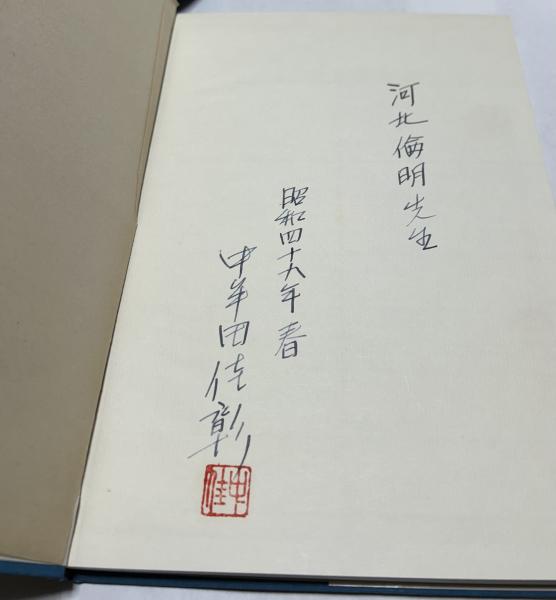 河北倫明先生
昭和四十九年春
中牟田佳彰
中佳